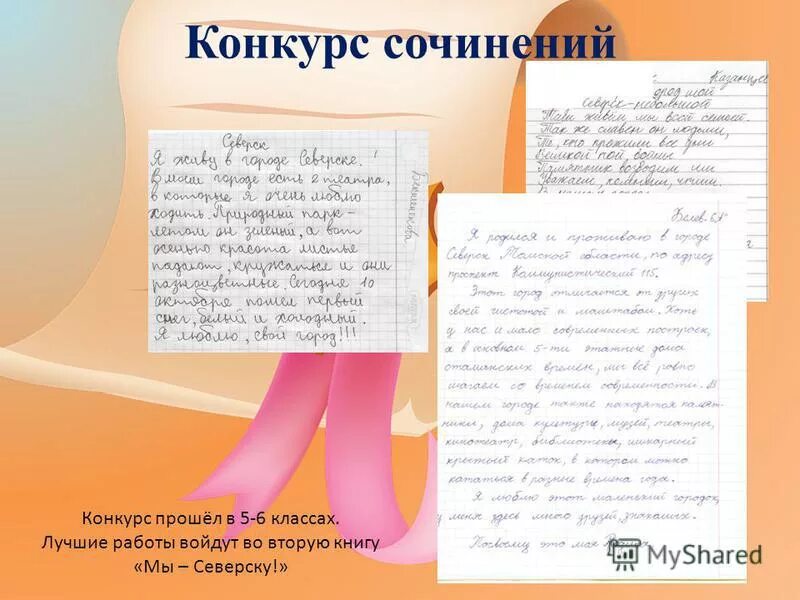 Конкурс сочинений
Казанцев
ород мой
Северск - небольшой
Там живём мы всей семьёй.
Так же славен он людьми,
Те, кто прожили все дни
Великой той, войны
Памятник возводим им
Уважаем, помним, чтим.
Северск
Я живу в городе Северске.
В моём городе есть 2 театра,
в которые я очень люблю
ходить. Природный парк -
летом он зелёный, а вот
осенью красота листье
падают, кружаться и они
разноцветные. Сегодня 10
октября пошел первый
снег, белый и холодный.
Я люблю, свой город!!!
Белов 6
Я родился и проживаю в городе
Северск Томской области, по адресу
проспект Коммунистический 115.
Этот город отличается от других
своей чистотой и маштабом. Хоть
у нас и мало современных построек,
а в основном 5-ти этажные дома
сталинских времен, мы всё ровно
шагаем со временем современности. В
нашем городе также находятся памят-
ники, дома культуры, музей, театры,
кинотеатр, библиотеки, шикарный
крытый каток, в котором можно
кататься в разные времена года.
Я люблю этот маленький городок,
у меня здесь много друзей, знакомых.
Поэтому это моя
Конкурс прошёл в 5-6 классах.
Лучшие работы войдут во вторую книгу
«Мы – Северску!»
MyShared